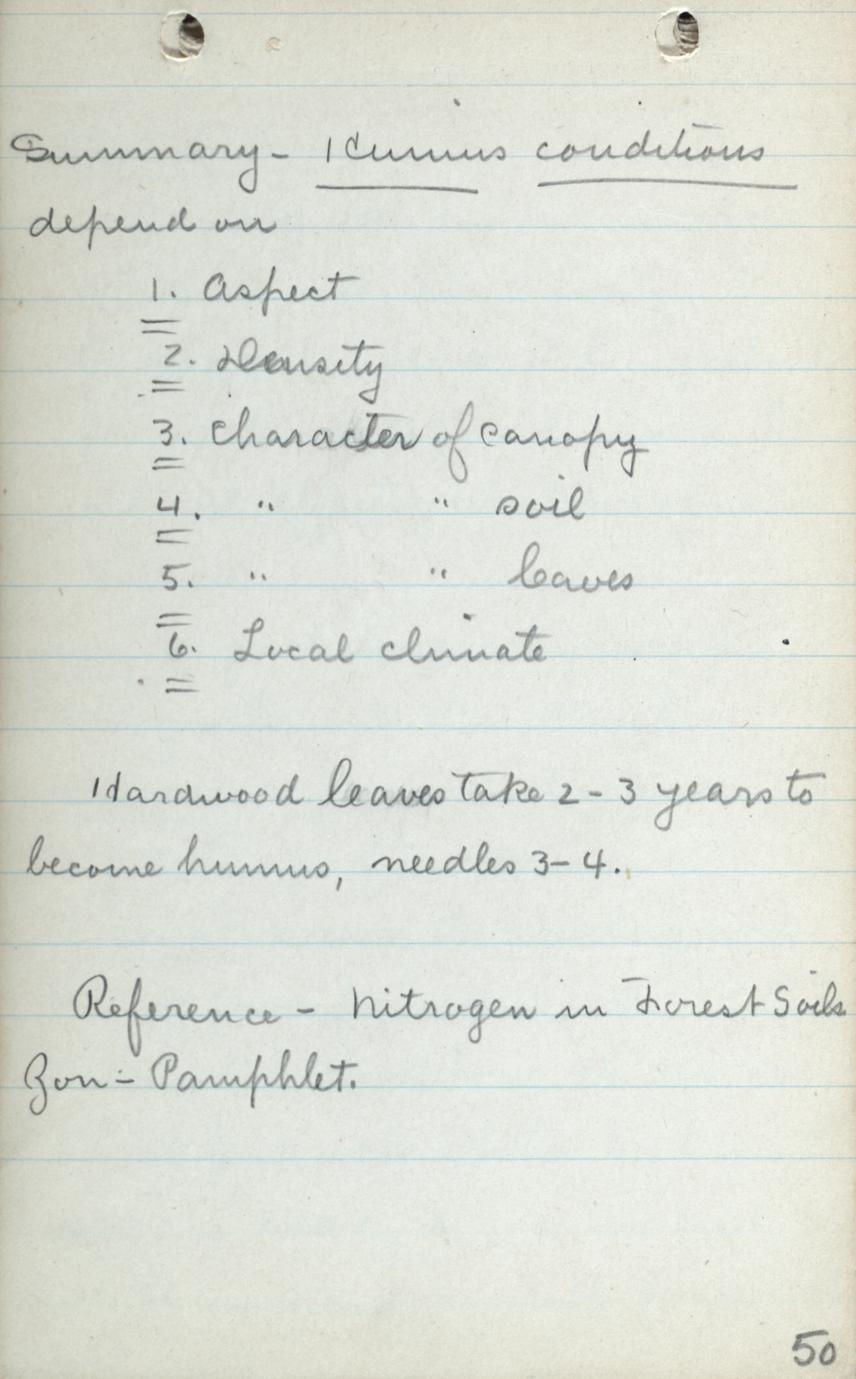 Summary - Humus conditions
depend on
1. Aspect
2. Density
3. Character of Canopy
4. " " soil
5. " " leaves
6. Local climate
Hardwood leaves take 2-3 years to
become humus, needles 3-4.
Reference - Nitrogen in Forest Soils
Zon - Pamphlet.
50